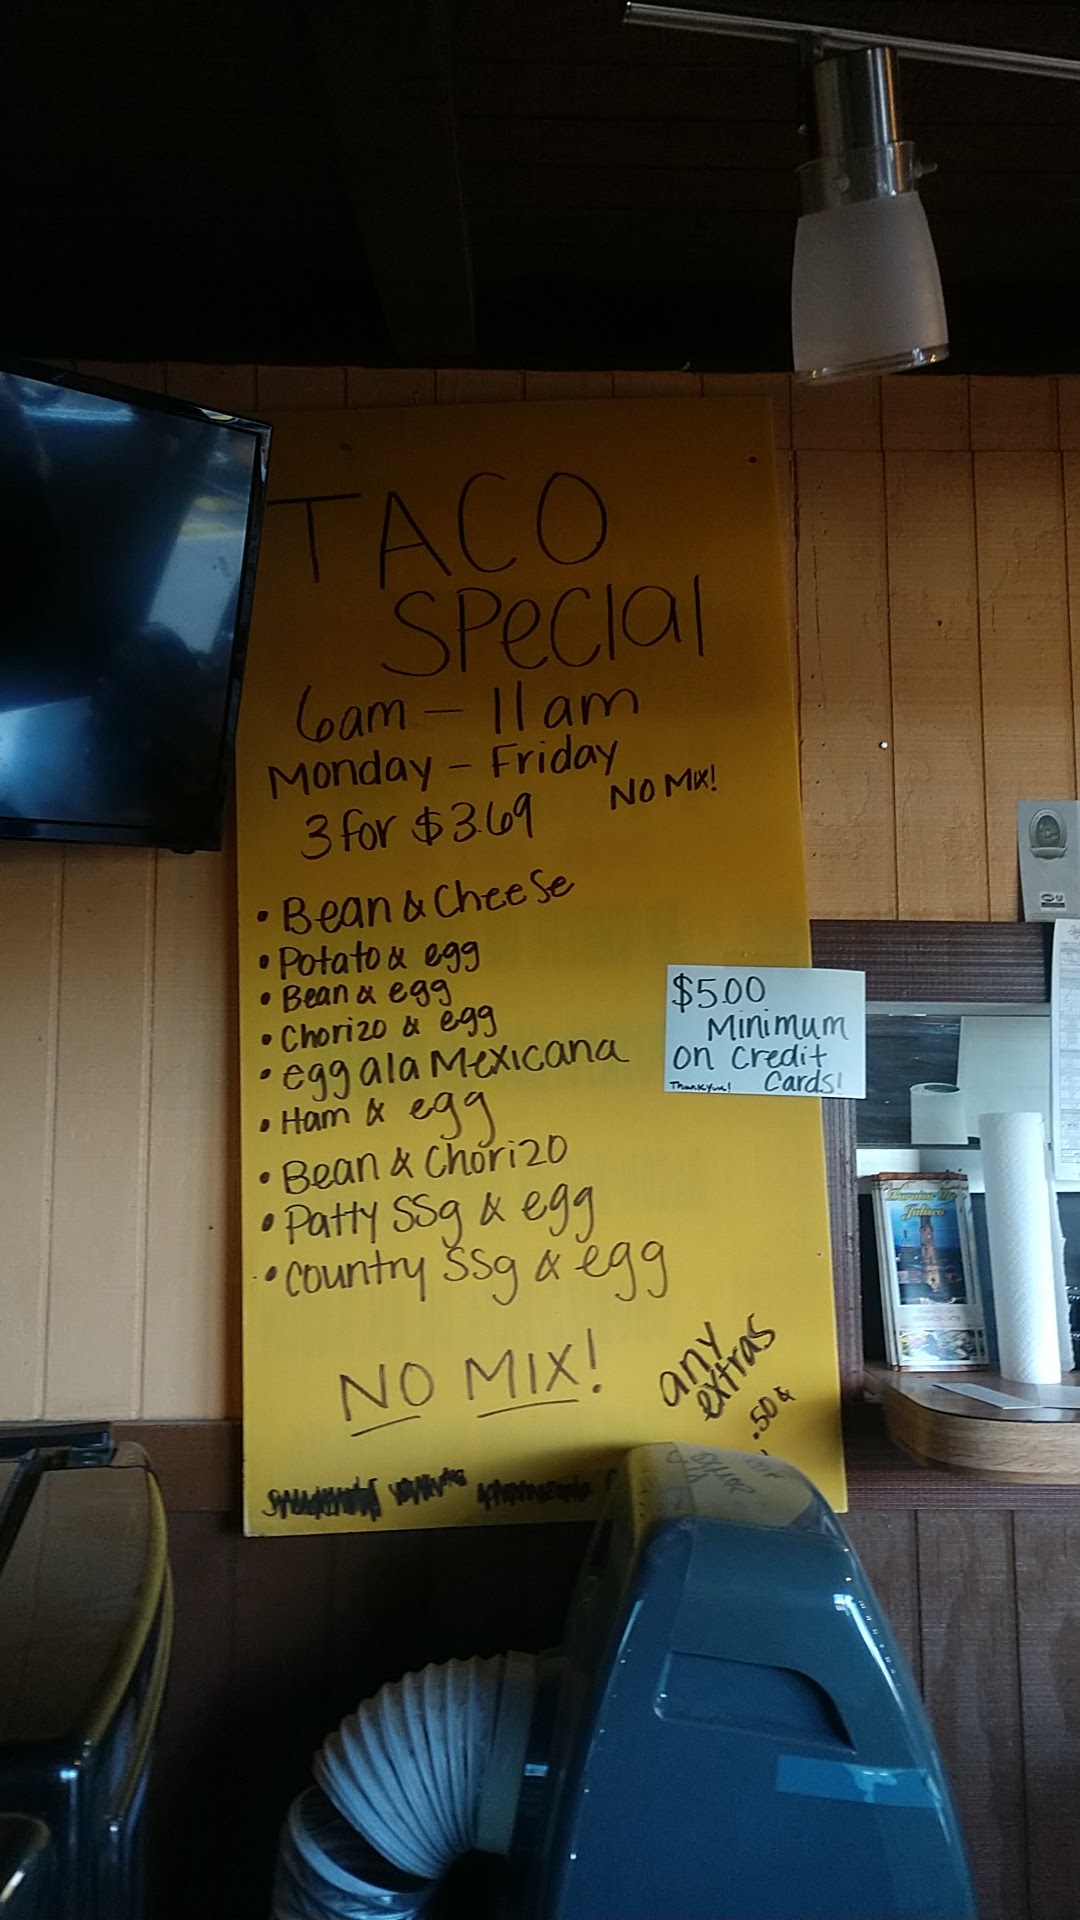 TACO
SPecIal
6am - 11am
Monday - Friday
3 for $3.69
NO MIX!
• Bean & Cheese
• Potato & egg
• Bean & egg
• Chorizo & egg
• egg ala Mexicana
• Ham & egg
• Bean & Chorizo
• Patty SSg & egg
• Country SSg & egg
$5.00
Minimum
on Credit
Cards!
Thank you!
NO MIX!
any
extras
.50¢
Jalisco